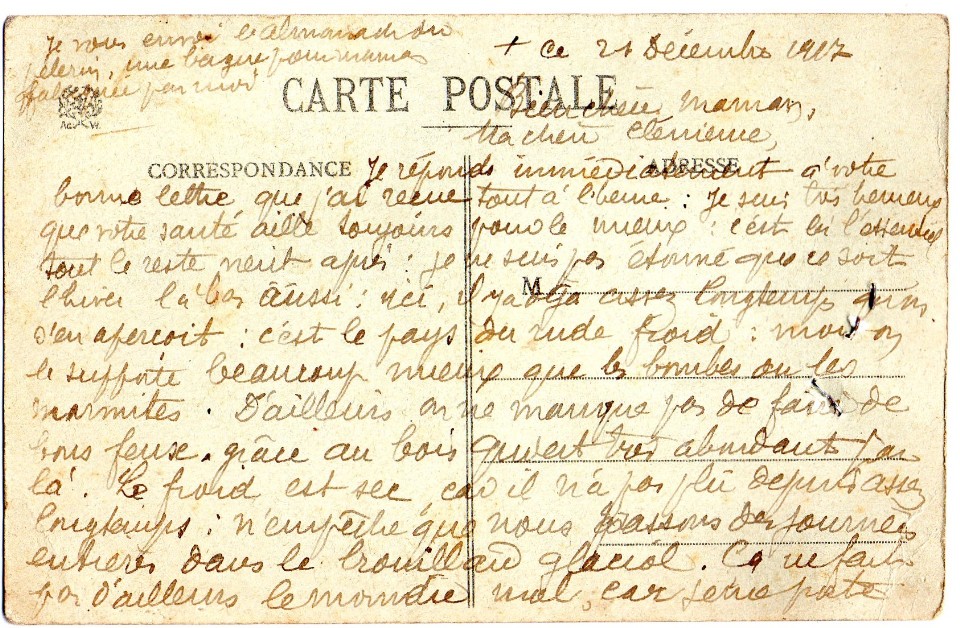 Je vous envoi l'almanach du
pèlerin, une bague pour maman
fabriquée par moi
+ Ce 21 Décembre 1917
CARTE POSTALE
A. W.
Bien chère maman,
Ma chère Clémence,
CORRESPONDANCE
ADRESSE
Je réponds immédiatement à votre
bonne lettre que j'ai reçue tout à l'heure : Je suis très heureux
que votre santé aille toujours pour le mieux : c'est là l'essentiel
tout le reste vient après : je ne suis pas étonné que ce soit
M
l'hiver là bas aussi : ici, il y a déjà assez longtemps qu'on
s'en aperçoit : c'est le pays du rude froid : mais on
le supporte beaucoup mieux que les bombes ou les
marmites. D'ailleurs on ne manque pas de faire de
bons feux grâce au bois qui est très abondant par
là. Le froid est sec, car il n'a pas plu depuis assez
longtemps : n'empêche que nous passons des journées
entières dans le brouillard glacial. Ça ne fait
pas d'ailleurs le moindre mal, car je me porte